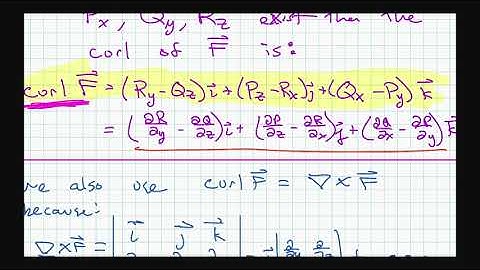 Px, Qy, Rz exist then the
curl of F⃗ is:
curl F⃗ = (Ry - Qz)i⃗ + (Pz - Rx)j⃗ + (Qx - Py)k⃗
= (∂R/∂y - ∂Q/∂z)i⃗ + (∂P/∂z - ∂R/∂x)j⃗ + (∂Q/∂x - ∂P/∂y)k⃗
we also use curl F⃗ = ∇ x F⃗
because:
∇xF⃗ = | i⃗ j⃗ k⃗ | = i⃗ | ∂/∂y ∂/∂z |